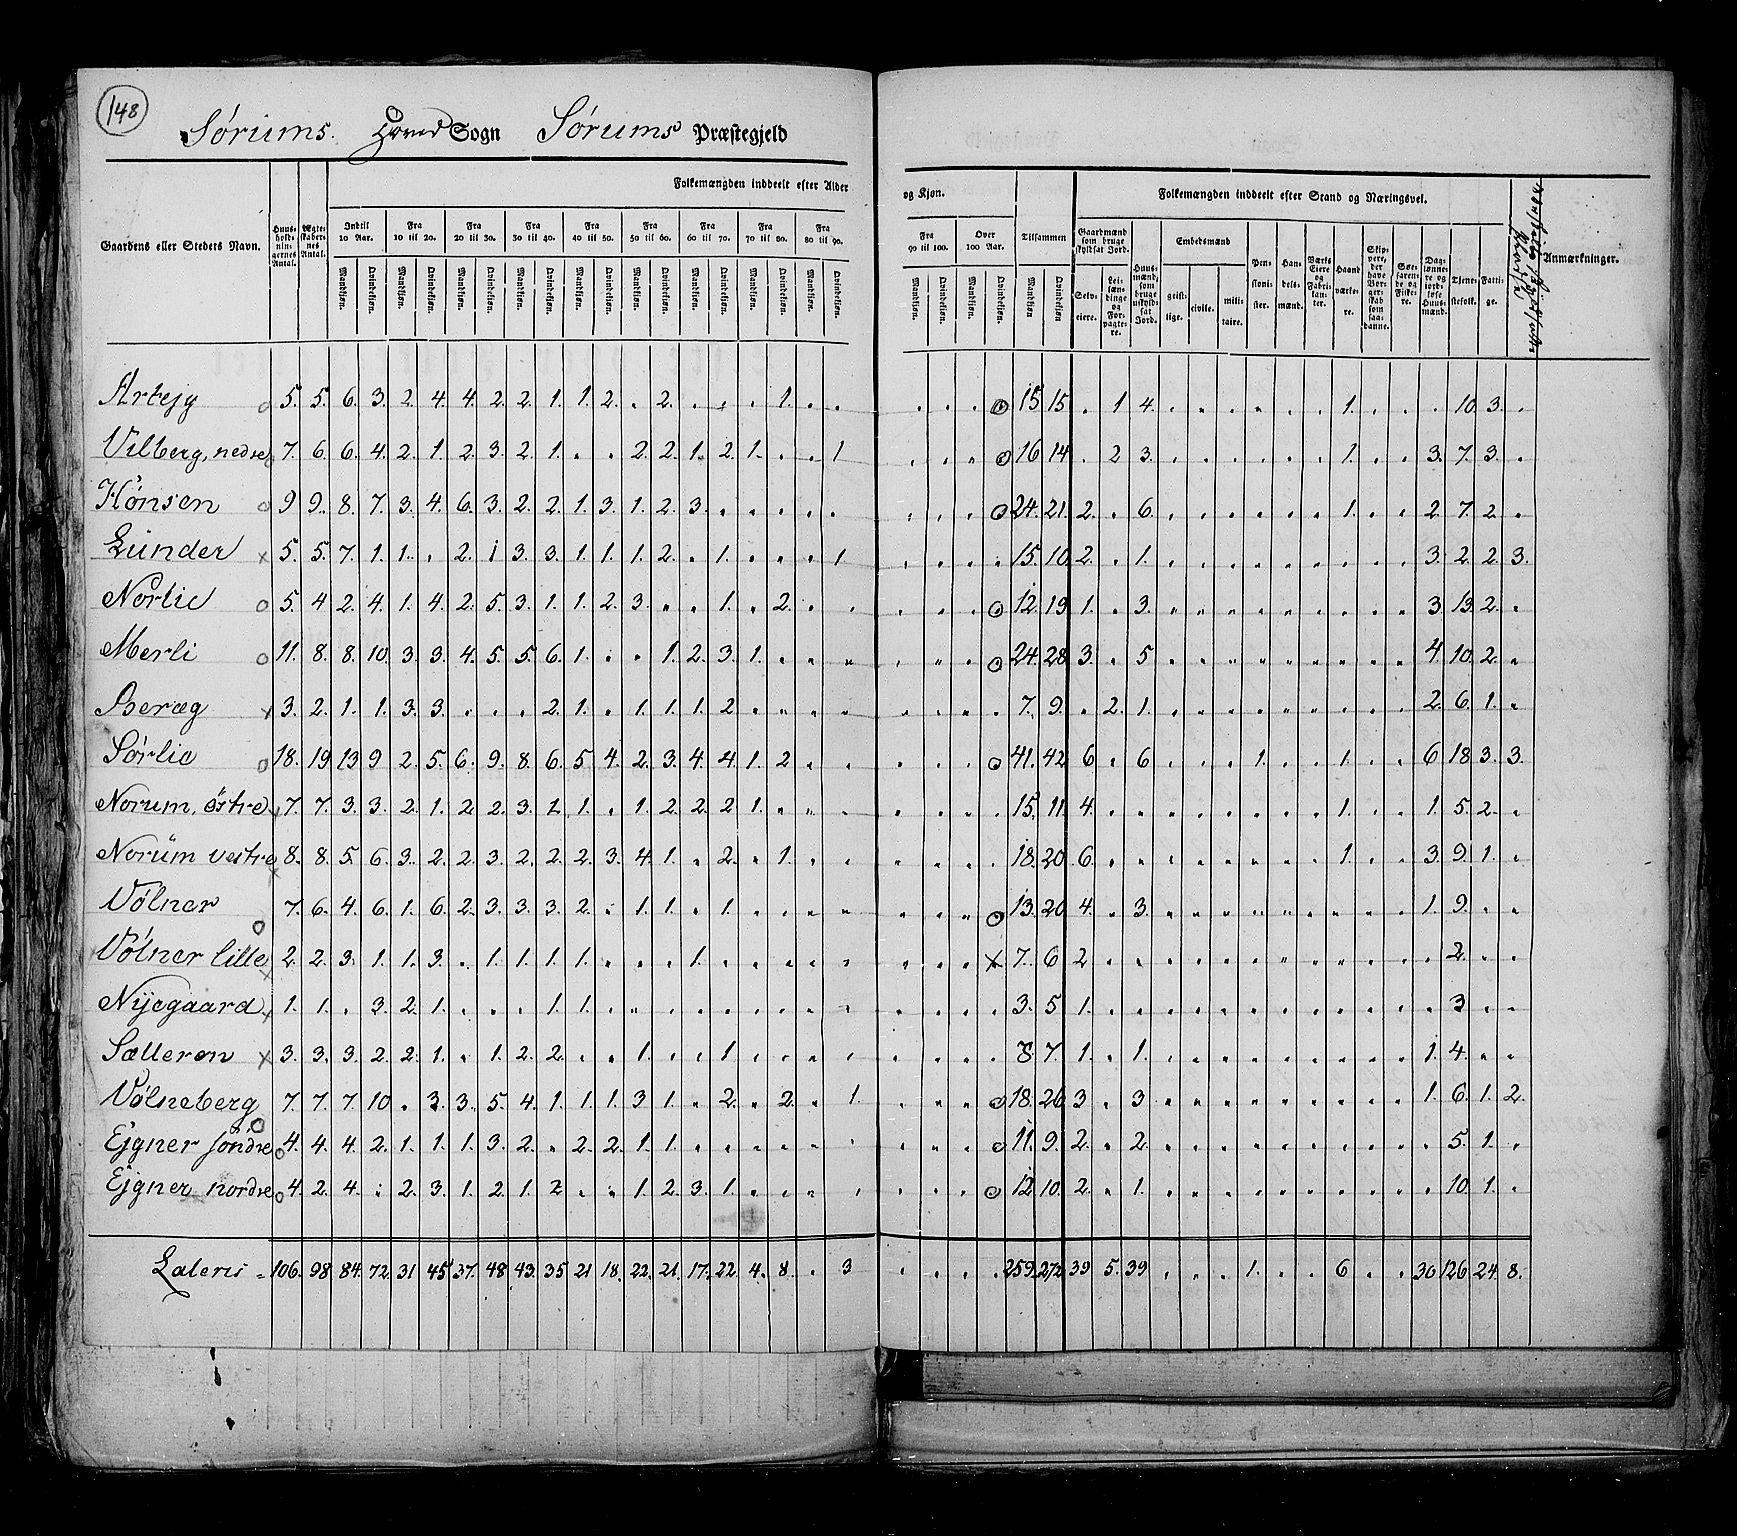 148
Sørums Hoved Sogn Sørums Præstegjeld
Folkemængden inddeelt efter Alder og Kjøn.
Folkemængden inddeelt efter Stand og Næringsvei.
Gaardens eller Stedets Navn.
Huus-holdnin-gernes Antal.
Ægte-skaber-nes Antal.
Indtil 10 Aar.
Fra 10 til 20.
Fra 20 til 30.
Fra 30 til 40.
Fra 40 til 50.
Fra 50 til 60.
Fra 60 til 70.
Fra 70 til 80.
Fra 80 til 90.
Fra 90 til 100.
Over 100 Aar.
Tilsammen
Mandkjøn. Qvindekjøn.
Gaardmænd som bruge skyldsat Jord.
Selv-eiere.
Lei-læn-dinge og For-pagte-re.
Huus-mænd, som bruge uskyld-sat Jord.
Embedsmænd
geist-lige. civile. mili-taire.
Pen-sioni-ster.
Han-dels-mænd.
Værks Eiere og Fabri-kan-ter.
Haand værke-re.
Skip-pere, der have Bor-ger-skab som saa-danne.
Søe-faren-de og Fiske-re.
Dag-lønne-re og jord-løse Huus-mænd.
Tjene-stefolk.
Fatti-ge.
Anmærkninger.
Artejg 5. 5. 6. 3. 2. 4. 4. 2. 2. 1. 1. 2. . 2. . . . 1. . . . . . . 15. 15. . 1 4. . . . . . . 1. . . . 10. 3. .
Vilberg, nedre 7. 6. 6. 4. 2. 1. 2. 3. 2. 1. . . 2. 2. 1. 2. 1. . . 1 . . . . 16 14. . 2 3. . . . . . . 1. . . 3. 7. 3. .
Hønsen 9 9. 8. 7. 3. 4. 6. 3. 2. 2. 1. 3. 1. 2. 3. . . . . . . . . . 24. 21. 2. . 6. . . . . . . 1. . . 2 7. 2. .
Lunder 5. 5. 7. 1. 1. . 2. 1 3. 3. 1. 1. 1. 2. . 1. . . . 1. . . . . 15. 10. 2. . 1. . . . . . . . . . 3. 2. 2. 3.
Norlie 5. 4 2. 4. 1. 4. 2. 5. 3. 1. 1. 2. 3. . . 1. . 2. . . . . . . 12. 19 1. . 3. . . . . . . . . . 3 13. 2. .
Merli 11. 8. 8. 10. 3. 3. 4. 5. 5. 6. 1. . . 1. 2. 3. 1. . . . . . . . 24. 28. 3. . 5. . . . . . . . . . 4 10. 2. .
Beræg 3. 2. 1. 1. 3. 3. . . . 2. 1. . 1. 1. 1. 2. . . . . . . . . 7. 9. . 2. 1. . . . . . . . . . 2. 6. 1. .
Sørlie 18. 19 13 9 2. 5. 6. 9. 8. 6. 5. 4. 2. 3. 4. 4. 1. 2. . . . . . . 41. 42 6. . 6. . . . 1. . . 1. . . 6 18. 3. 3.
Norum, østre 7. 7. 3. 3. 2. 1. 2. 2. 3. 1. 1. . 1. 2. 2. 2. 1. . . . . . . . 15. 11. 4. . . . . . . . . 1. . . 1. 5. 2. .
Norum vestre 8. 8. 5. 6. 3. 2. 2. 3. 2. 2. 2. 3. 4. 1. . 2. . 1. . . . . . . 18. 20 6. . . . . . . . . 1. . . 3. 9. 1. .
Vølner 7. 6. 4. 6. 1. 6. 2. 3. 3. 3. 2. . 1. 1. . 1. . . . . . . . . 13. 20 4. . 3. . . . . . . . . . 1. 9. . .
Vølner lille 2. 2. 3. 1. 1. 3. . 1. 1. 1. 1. . . . 1. . . . . . . . . . 7. 6 2. . . . . . . . . . . . . 2. . .
Nyegaard 1. 1. . 3. 2. 1. . . . 1. 1. . . . . . . . . . . . . . 3. 5. 1. . . . . . . . . . . . . 3 . .
Sælleron 3. 3. 3. 2. 2. 1. . 1. 2. 2. . . 1. . . 1. . . . . . . . . 8. 7. 1. . 1. . . . . . . . . . 1. 4. . .
Vølneberg 7. 7. 7. 10. . 3. 3. 5. 4. 1. 1. 1. 3. 1. . 2. . 2. . 1. . . . . 18. 26 3. . 3. . . . . . . . . . 1. 6. 1. 2.
Ejgner søndre 4. 4. 4. 2. 1. 1. 1. 3. 2. . 2. 2. 1. 1. . . . . . . . . . . 11. 9. 2. . 2. . . . . . . . . . . 5. 1. .
Ejgner nordre 4. 2. 4. . 2. 3. 1. 2. 1. 2 . . 1. 2. 3. 1. . . . . . . . . 12. 10. 2. . 1. . . . . . . . . . . 10. 1. .
Lateris 106. 98 84. 72 31 45 37. 48 43. 35 21 18. 22. 21. 17. 22 4. 8 . 3 . . . . 259. 272 39 5. 39 . . . 1. . . 6 . . 30 126 24 8.